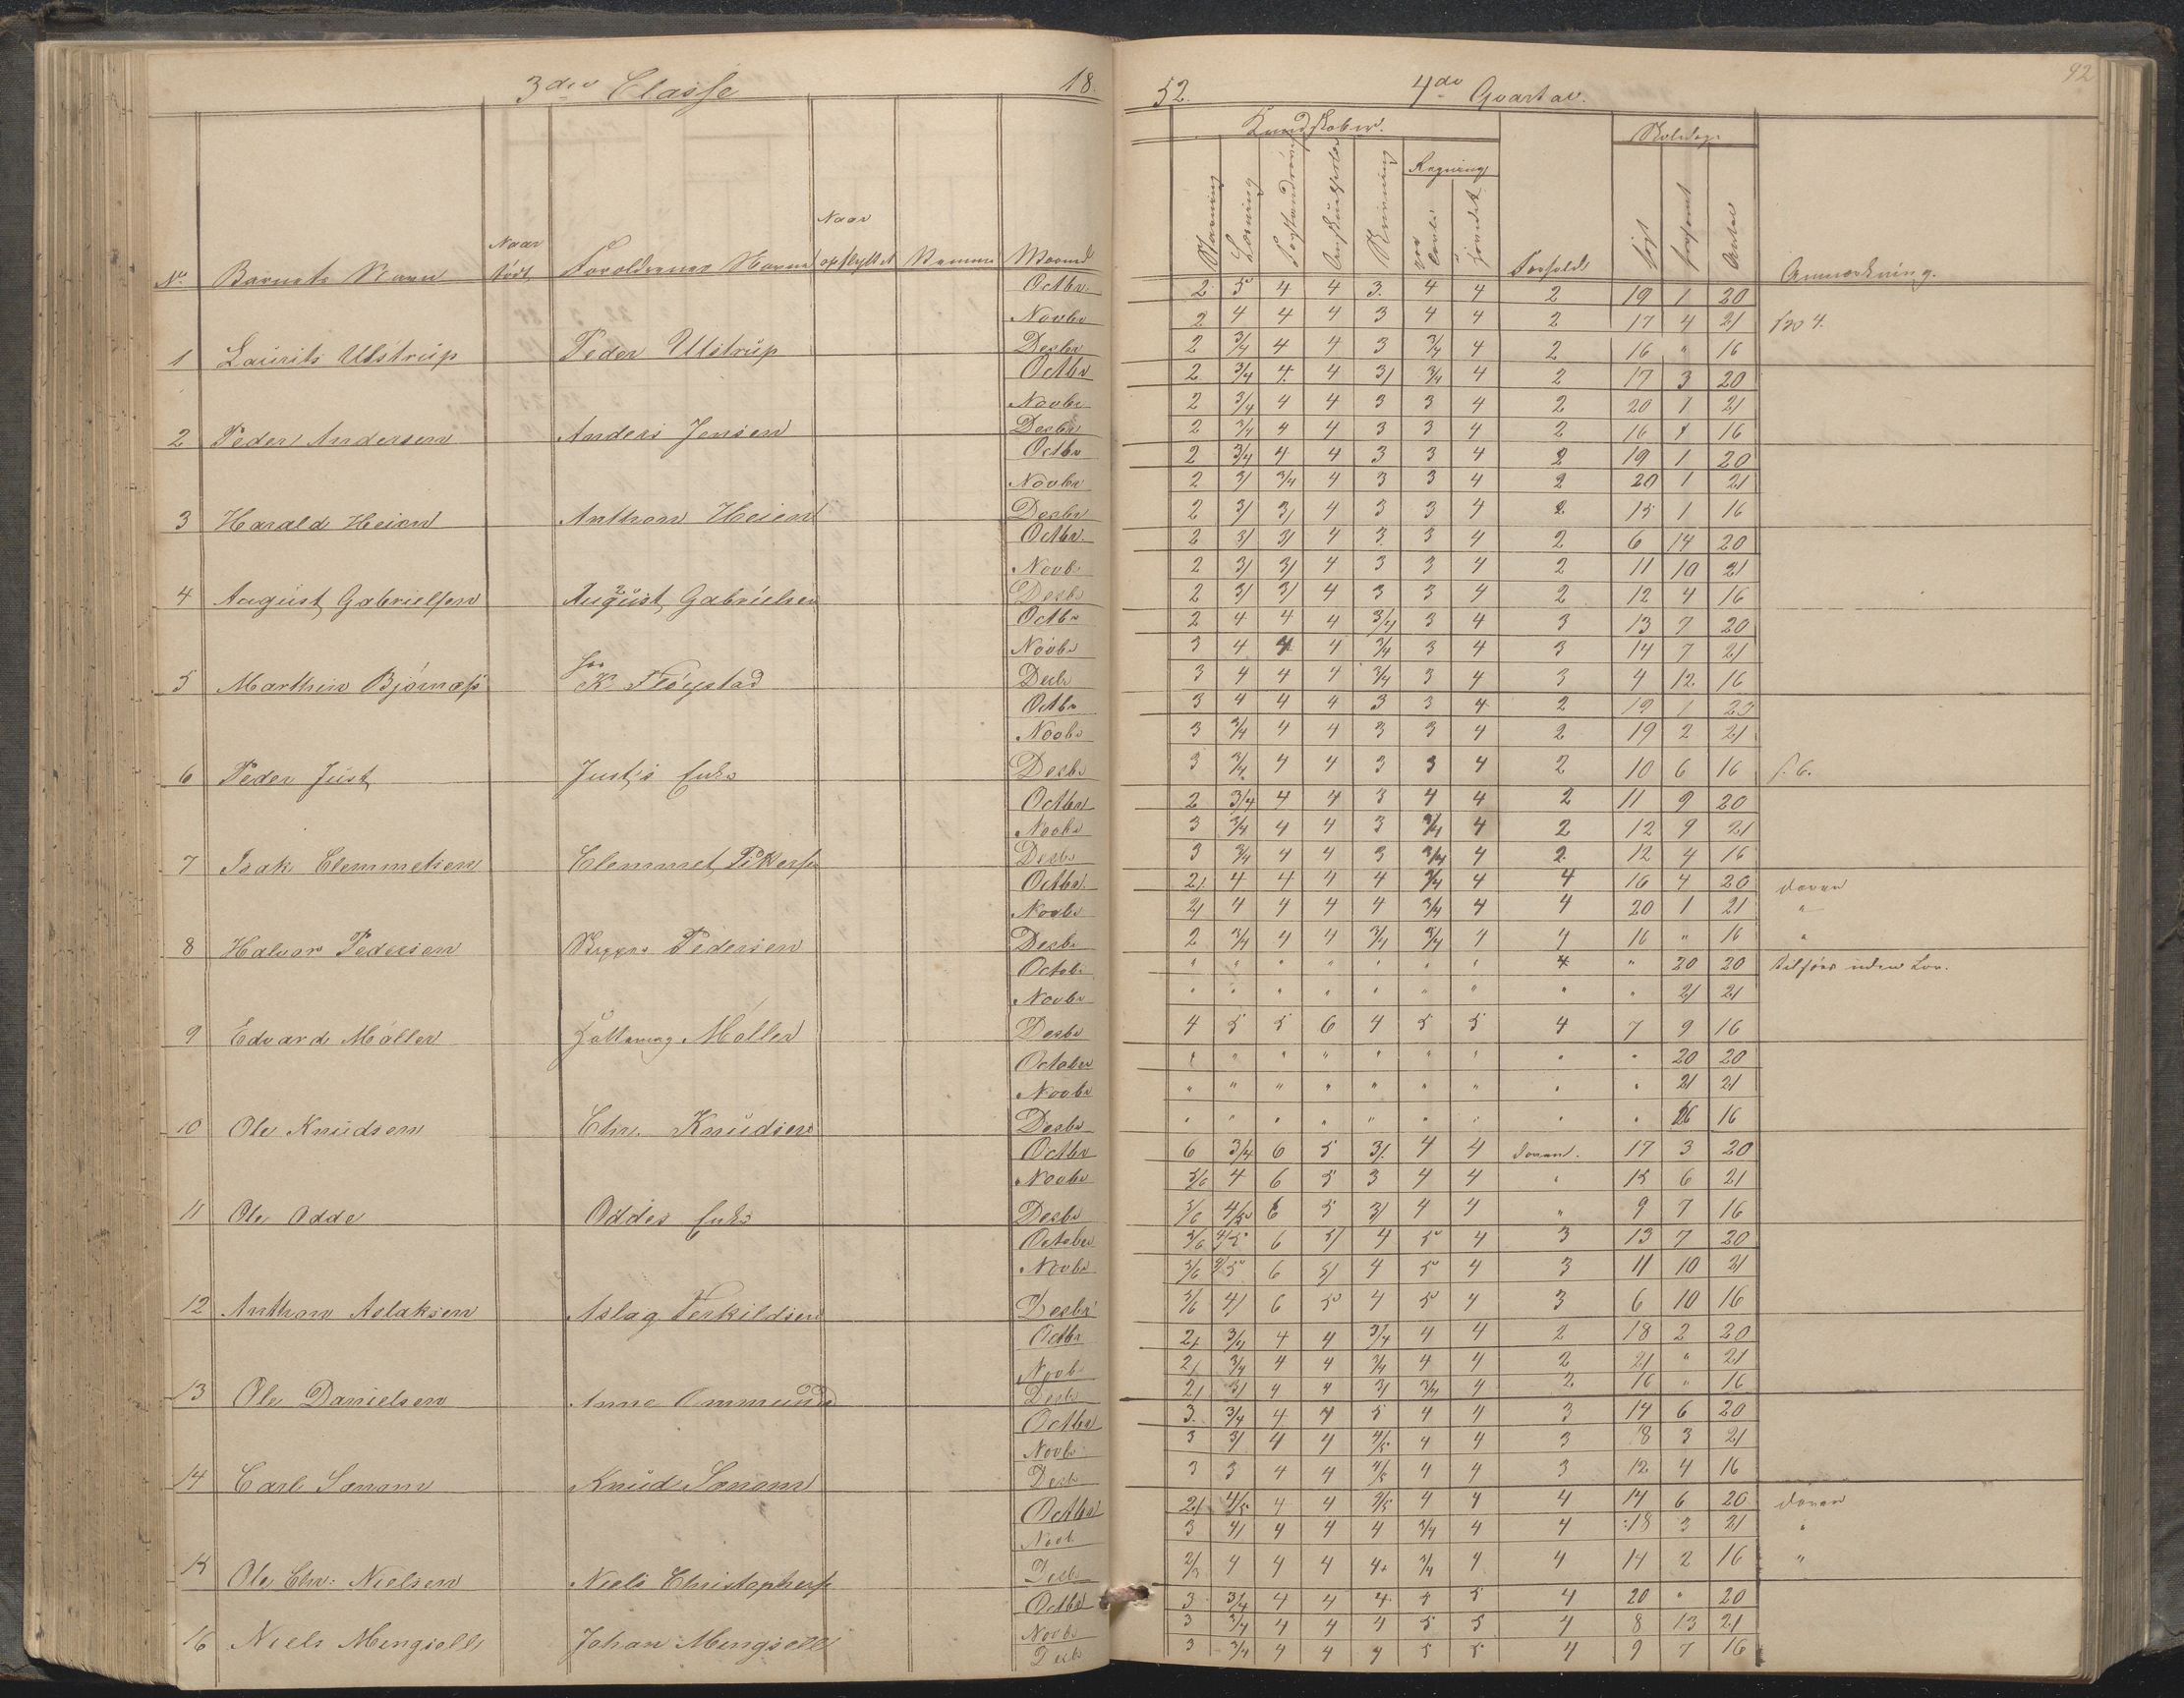 3die Classe 18.
52. 4de Qvartal. 92
No. Barnets Navn Naar født Forældrenes Navne Naar opflyttet Nummer Maaned
Kundskaber. Skoledage
Stavning Læsning Forstandsøv Skrivning Regning Forhold søgt forsømt Antal Anmærkning.
Octbr. 2 5 4 4 3. 4 4 2 19 1 20
Novbr 2 4 4 4 3 4 4 2 17 4 21
1 Laurits Ulstrup Peder Ulstrup Desbr 2 3/4 4 4 3 3/4 4 2 16 " 16
Octbr 2 3/4 4. 4 3/ 3/4 4 2 17 3 20
Novbr 2 3/4 4 4 3 3 4 2 20 1 21
2 Peder Andersen Anders Jensen Desbr 2 3/4 4 4 3 3 4 2 16 " 16
Octbr 2 3/4 4 4 3 3 4 2 19 1 20
Novbr 2 3/ 3/4 4 3 3 4 2 20 1 21
3 Harald Heien Anthon Heien Desbr 2 3/ 3/ 4 3 3 4 2 15 1 16
Octbr. 2 3/ 3/ 4 3 3 4 2 6 14 20
Novb. 2 3/ 3/ 4 3 3 4 2 11 10 21
4 August Gabrielsen August Gabrielsen Desbr 2 3/ 3/ 4 3 3 4 2 12 4 16
Octbr 2 4 4 4 3/4 3 4 3 13 7 20
Novbr 3 4 4 4 3/4 3 4 3 14 7 21
5 Marthin Bjørnæss K. Fløystad Desbr 3 4 4 4 3/4 3 4 3 4 12 16
Octbr 3 4 4 4 3 3 4 2 19 1 20
Novbr 3 3/4 4 4 3 3 4 2 19 2 21
6 Peder Just Just's Enke Desbr 3 3/4 4 4 3 3 4 2 10 6 16 f. 6.
Octbr 2 3/4 4 4 3 4 4 2 11 9 20
Novbr 3 3/4 4 4 3 3/4 4 2 12 9 21
7 Isak Clemmetsen Clemmet Desbr 3 3/4 4 4 3 3/4 4 2 12 4 16
Octbr. 2/ 4 4 4 4 3/4 4 4 16 4 20 doven
Novbr 2/ 4 4 4 4 3/4 4 4 20 1 21 "
8 Halvor Pedersen Pedersen Desbr 2 3/4 4 4 3/4 3/4 4 4 16 " 16 "
Octob. " " " " " " " 4 " 20 20 tilsøes uden Lov.
Novbr " " " " " " " " " 21 21
9 Edvard Møller Møller Desbr 4 5 5 6 4 5 5 4 7 9 16
October " " " " " " " " " 20 20
Novbr " " " " " " " " " 21 21
10 Ole Knudsen Chr. Knudsen Desbr " " " " " " " " " 16 16
Octbr 6 3/4 6 5 3/. 4 4 doven. 17 3 20
Novbr 5/6 4 6 5 3 4 4 " 15 6 21
11 Ole Odde Oddes Enke Desbr 5/6 4/5 6 5 3/ 4 4 " 9 7 16
October 5/6 4/5 6 5/ 4 5 4 3 13 7 20
Novbr 5/6 4/5 6 5/ 4 5 4 3 11 10 21
12 Anthon Aslaksen Aslag Terkildsen Desbr 5/6 4/ 6 5 4 5 4 3 6 10 16
Octbr 2/ 3/4 4 4 3/4 4 4 2 18 2 20
Novb. 2/ 3/4 4 4 3/4 4 4 2 21 " 21
13 Ole Danielsen Anne Desbr 2/ 3/ 4 4 3/ 3/4 4 2 16 " 16
Octbr 3. 3/4 4 4 5 4 4 3 14 6 20
Novb. 3 3/ 4 4 4/5 4 4 3 18 3 21
14 Carl Knud Desb 3 3 4 4 4/5 4 4 3 12 4 16
Octbr 2/ 4/5 4 4 4/5 4 4 4 14 6 20 doven
Novb. 3 4/ 4 4 4 3/4 4 4 18 3 21 "
15 Ole Chr. Nielsen Niels Christophers Desb. 2/3 4 4 4 4 3/4 4 4 14 2 16 "
Octbr 3 3/4 4 4 4 4 5 4 20 " 20
Novb. 3 3/4 4 4 4 5 5 4 8 13 21
16 Niels Mengsoll Johan Mengsoll Desb 3 3/4 4 4 4 5 5 4 9 7 16